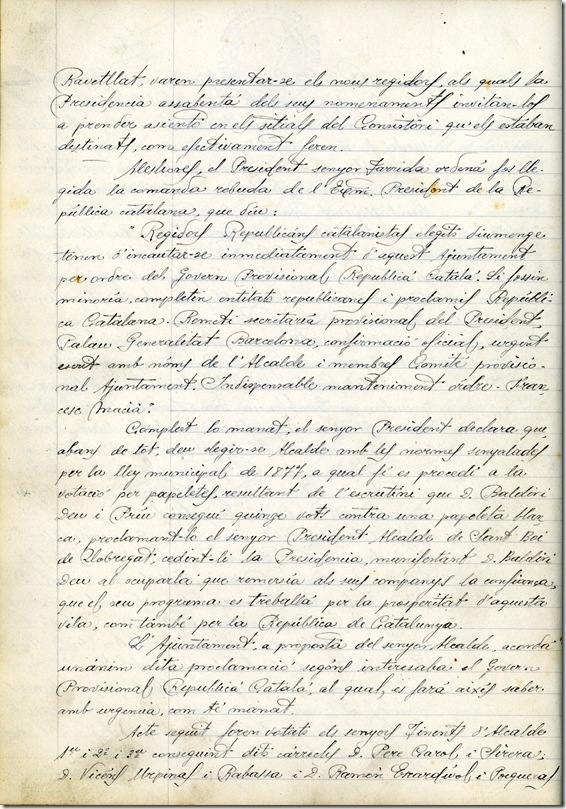 Ravetllat, varen presentar-se els nous regidors, als quals la
Presidencia assabentá dels seus nomenaments invitan-los
a prender asiento en els sitials del Consistori qu'els estaban
destinats, com efectivament feren.
Aleshores, el President senyor Farrida ordená fos lle-
gida la comanda rebuda de l'Exm. President de la Re-
pública catalana, que diu:
"Regidors Republicáns catalanistas elegits diumenge
tenen d'incautar-se inmediatament d'aquest Ajuntament
per ordre del Govern Provisional Republicá Catalá. Si fossin
minoría, completin entitats republicanes i proclamis Repúbli-
ca Catalana. Remeti secretaría provisional del President,
Palau Generalitat Barcelona, confirmació oficial, urgent
escrit amb nóms de l'Alcalde i membres Comité provisio-
nal Ajuntament. Indispensable manteniment ordre. Fran-
cesc Maciá".
Complert lo manat, el senyor President declara que,
abans de tot, deu elegir-se Alcalde amb les normes senyalades
per la lley municipal de 1877, a qual fi es procedí a la
votació per papeletes, resultant de l'escrutini que D. Baldiri
Deu i Príu conseguí quinze vots contra una papeleta blan-
ca, proclamant-lo el senyor President Alcalde de Sant Boi
de Llobregat; cedint-li la Presidencia, manifestant D. Baldiri
Deu al ocuparla que remercia als seus companys la confiança,
que el seu programa es treballá per la prosperitat d'aquesta
vila, com també per la República de Catalunya.
L'Ajuntament, a proposta del senyor Alcalde, acordá
unánim dita proclamació segóns interesaba el Govern
Provisional Republicá Catalá, al qual, es fará aixís saber
amb urgencia, com té manat.
Acte seguit foren votats els senyors Tinents d'Alcalde
1er i 2n i 3er conseguint dits cárrechs D. Pere Carol i
D. Vicéns Urpinas i Rabassa i D. Ramón Escardívol i